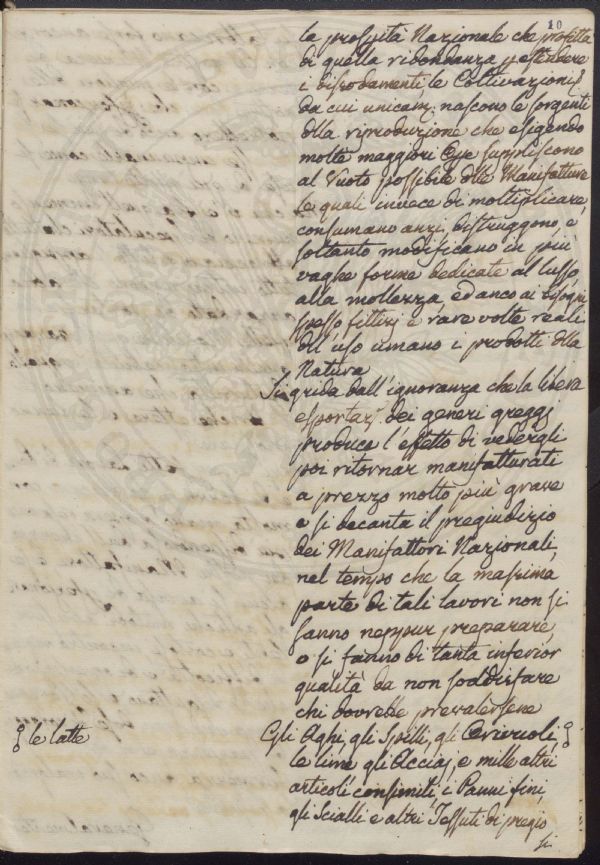 10
la prossita Nazionale che profitta
di quella ridondanza p estendere
i disodamenti le Coltivazioni,
da cui unicam. nascono le sorgenti
dlla riproduzione che esigendo
molte maggiori suppliscono
al Vuoto possibile dlle Manifatture
le quali invece di moltiplicare,
consumano anzi, distruggono, e
soltanto modificano in più
vaghe forme dedicate al lusso,
alla mollezza, ed anco ai bisogni
spesso fittizj e rare volte reali
dll'uso umano i prodotti dlla
Natura
Si grida dall'ignoranza che la libera
esportaz. dei generi greggj
produce l'effetto di vedergli
poi ritornar manifatturati
a prezzo molto più grave
e si decanta il pregiudizio
dei Manifattori Nazionali,
nel tempo che la massima
parte di tali lavori non si
sanno neppur preparare,
o si fanno di tanta inferior
qualità da non soddisfare
chi dovrebbe prevalersene
Gli Aghi, gli Spilli, gli
le latte
le lime gli Acciaj, e mille altri
articoli consimili i Panni fini,
gli Scialli e altri Tessuti di pregio
si